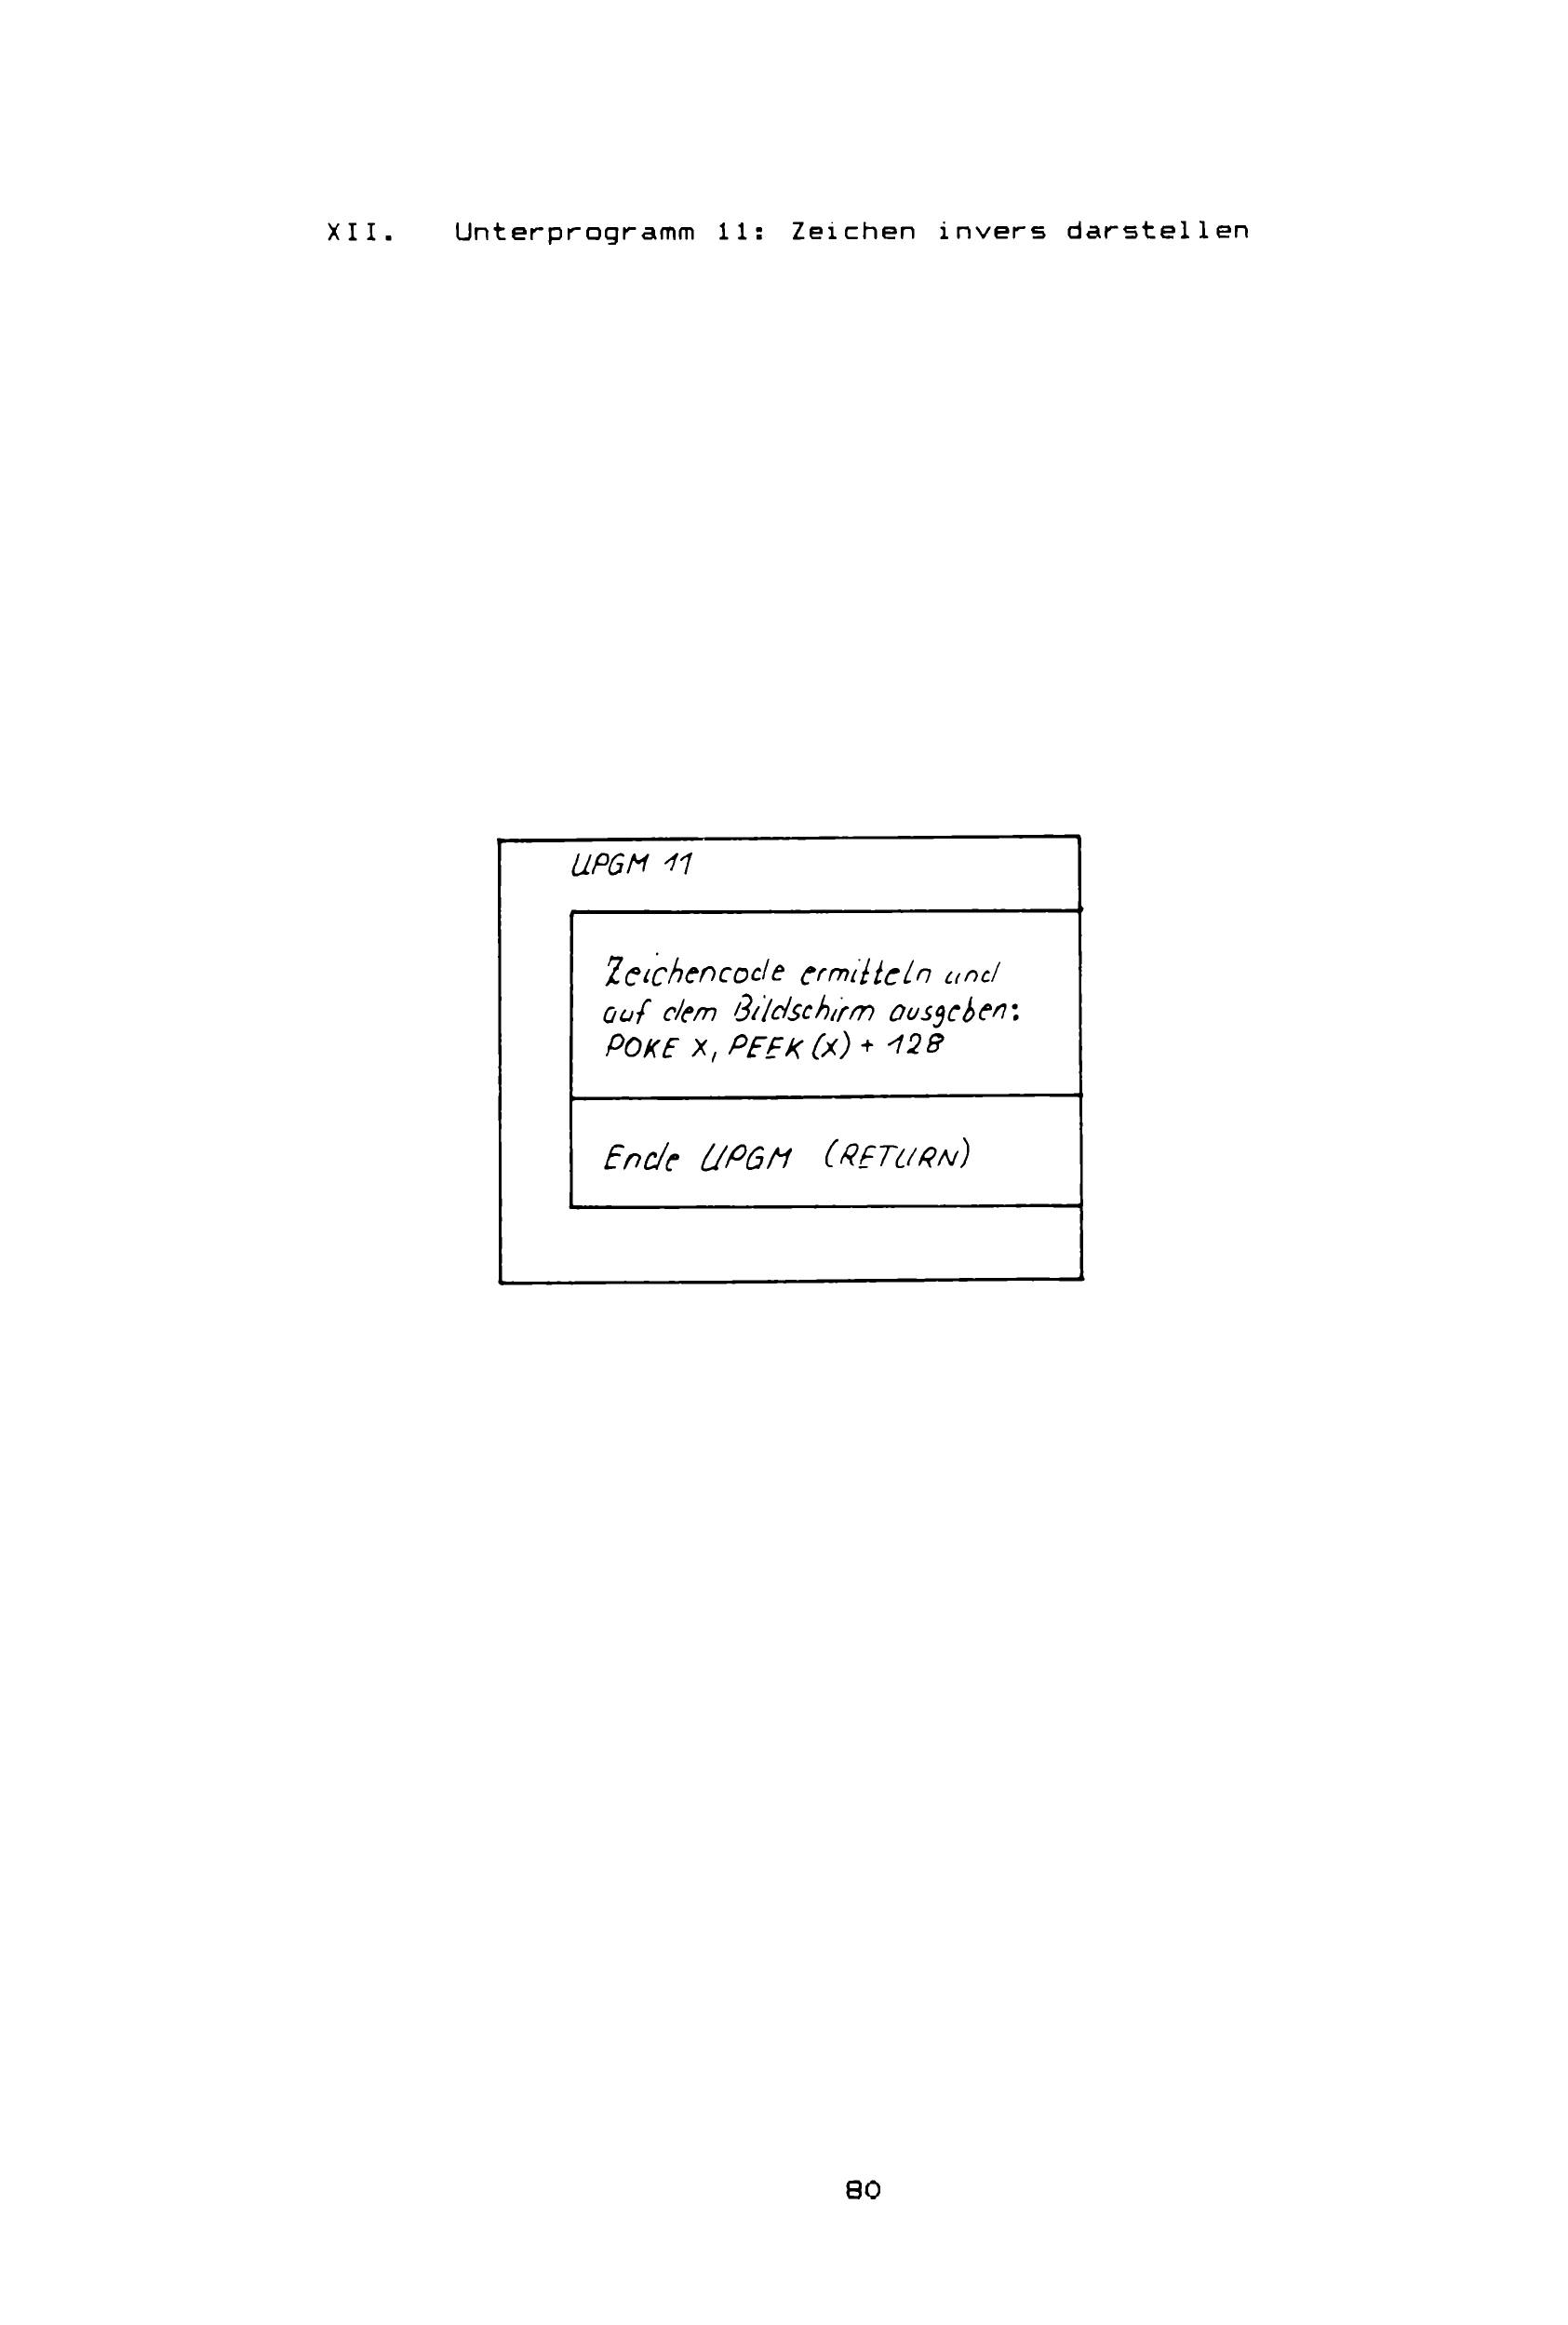 XII. Unterprogramm 11: Zeichen invers darstellen
UPGM 11
Zeichencode ermitteln und
auf dem Bildschirm ausgeben:
POKE X, PEEK (X) + 128
Ende UPGM (RETURN)
80